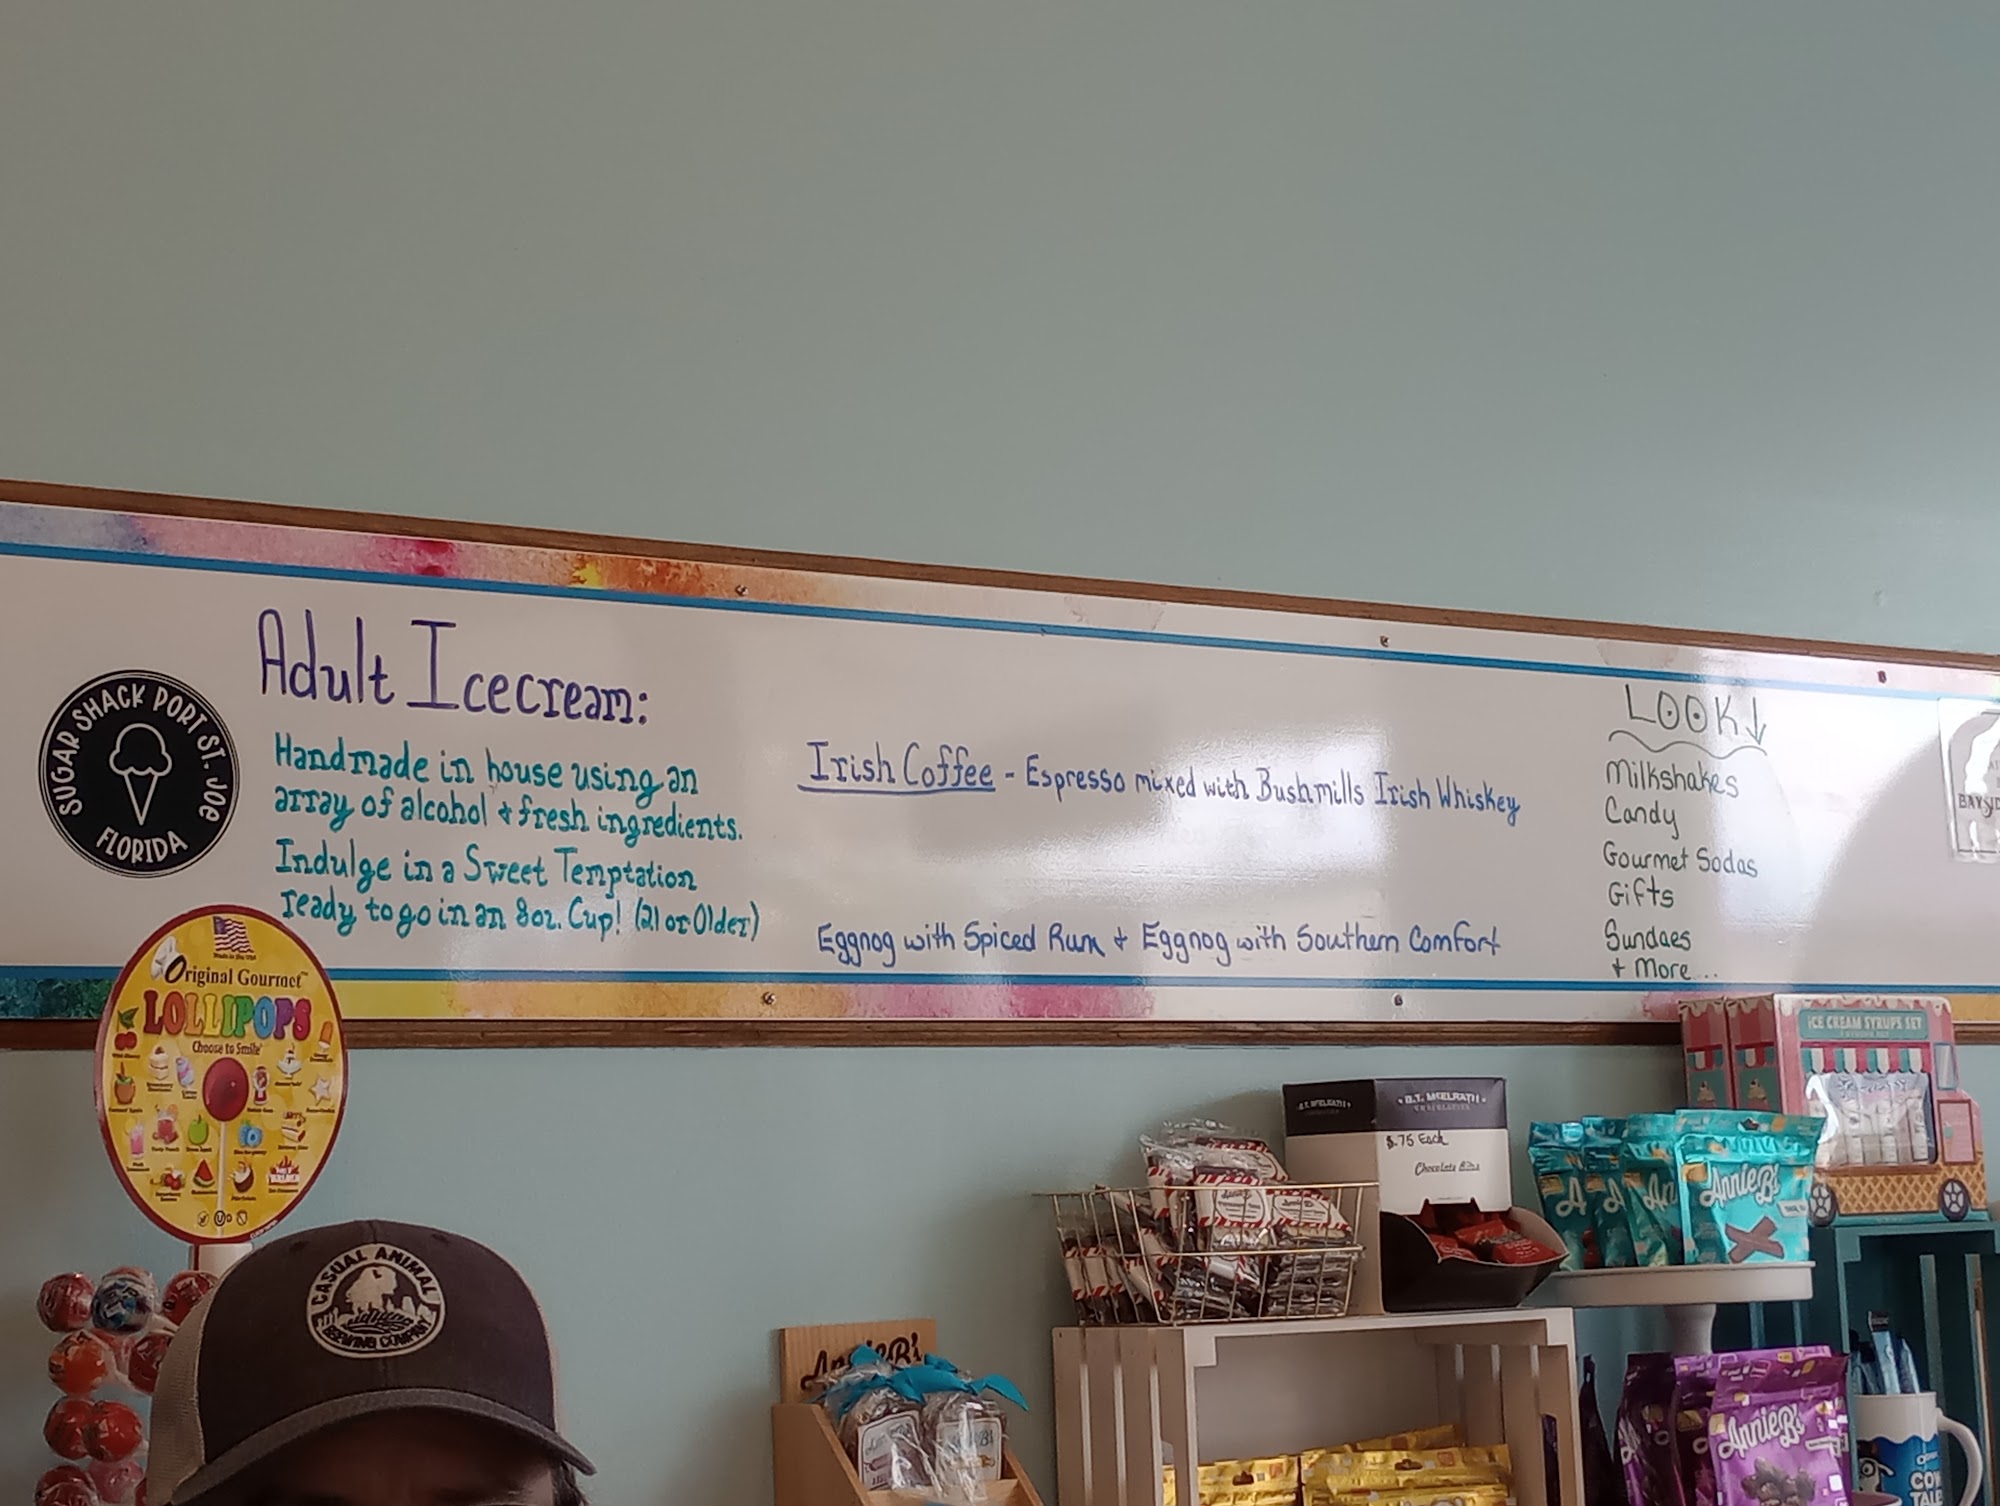 Adult Icecream:
Handmade in house using an
array of alcohol + fresh ingredients.
Indulge in a Sweet Temptation
ready to go in an 8oz. Cup! (21 or Older)
SUGAR SHACK PORT ST. JOE
FLORIDA
Irish Coffee - Espresso mixed with Bushmills Irish Whiskey
Eggnog with Spiced Rum + Eggnog with Southern Comfort
LOOK↓
Milkshakes
Candy
Gourmet Sodas
Gifts
Sundaes
+ More...
Original Gourmet™
LOLLIPOPS
Choose to Smile
CASUAL ANIMAL
BREWING COMPANY
Annie B's
B.T. McELRATH
B.T. McELRATH
CHOCOLATIER
$.75 Each
Chocolate Bites
ICE CREAM SYRUPS SET
Annie B's
Annie B's
COW